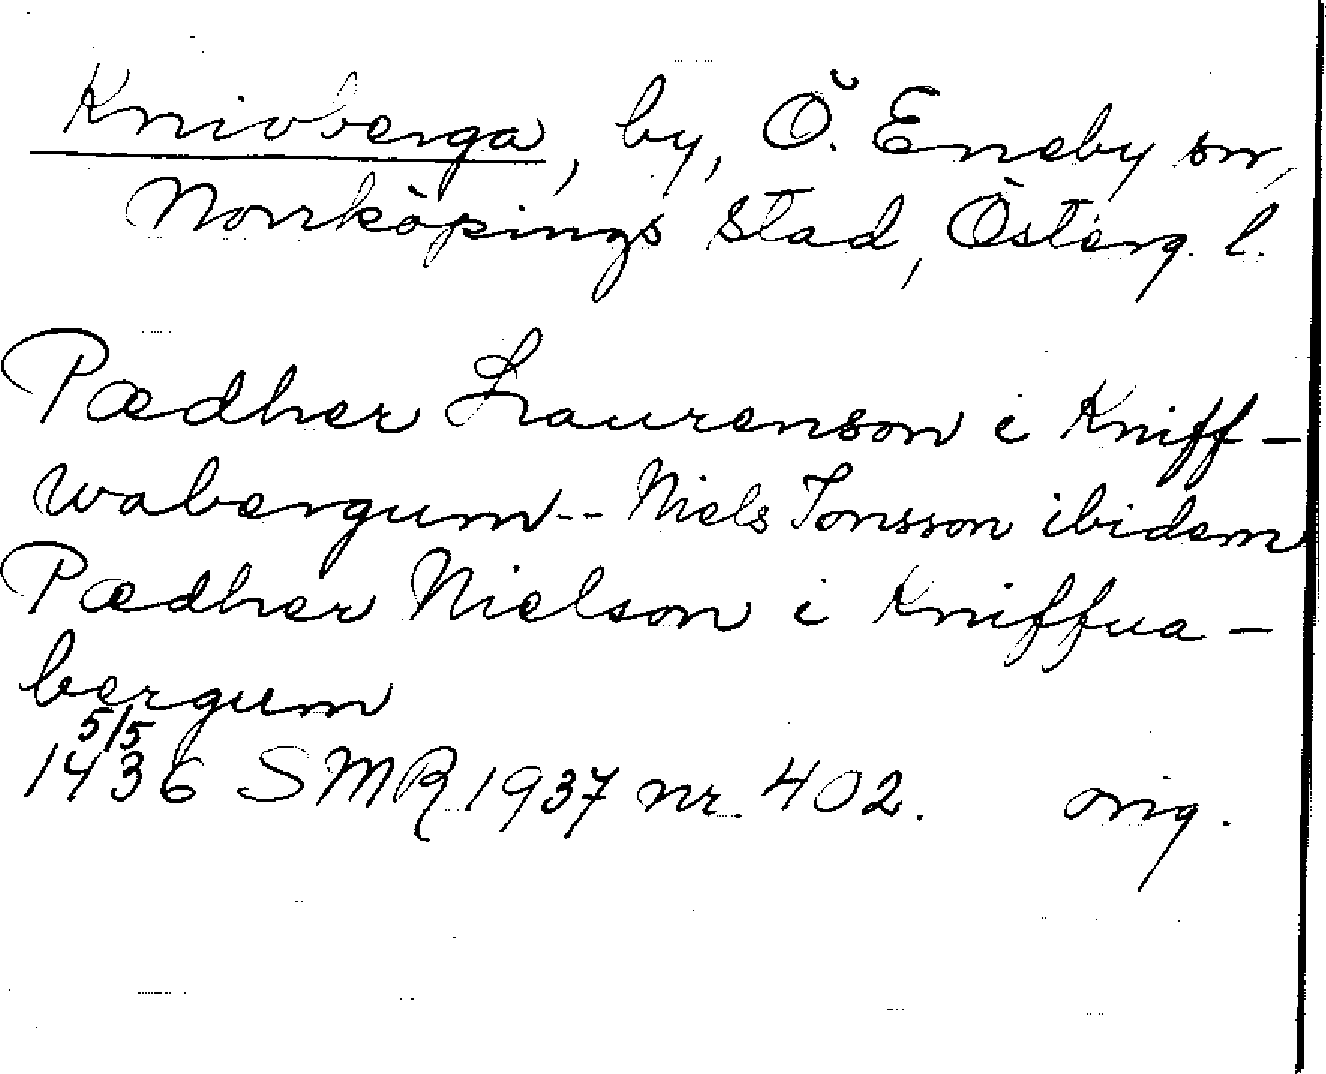 Knivberga, by, Ö. Eneby sn,
Norrköpings stad, Österg. l.
Pædher Laurenson i Kniff-
wabergum -- Niels Jonsson ibidem
Pædher Nielson i Kniffua-
bergum
5/5
1436 SMR 1937 nr 402. orig.